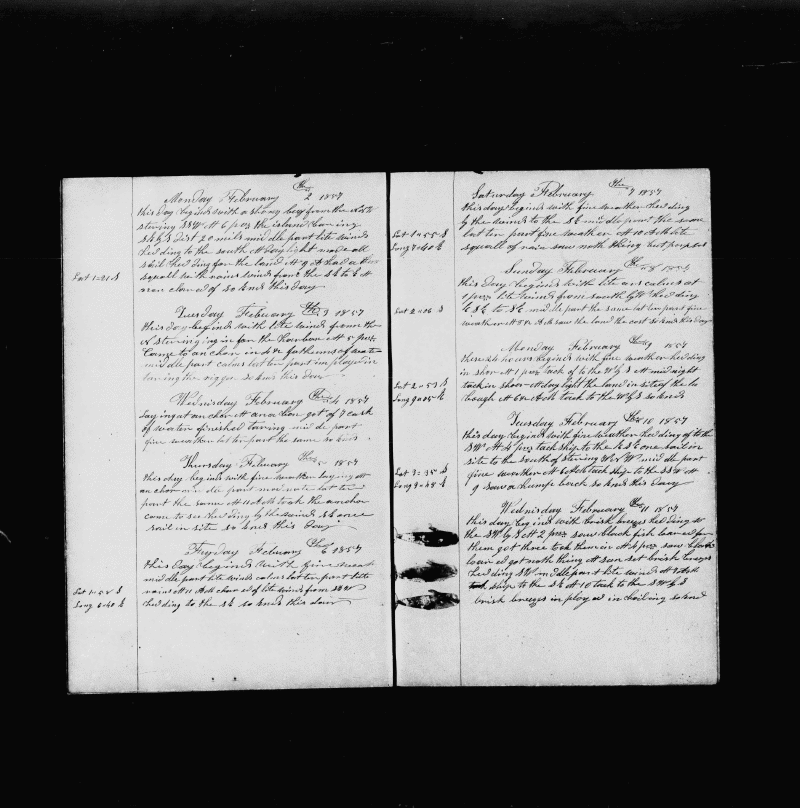 Monday February The 2 1857
this day begins with a strong bres from the
stering SSW At 6 pm the island bearing
S by E Dist 20 mils middle part lite winds
heding to the south At day light made all
sail heding for the land At 9 AM had a
squall with rains winds from the SE to E At
noon clared of so Ends this day
Lat 1=21 S
Tuesday February The 3 1857
this day begins with lite winds from the
N stering in for the Harbor At 5 pm
Came to anchor in 4 fathoms of water
middle part calms latter part imployed in
taring the riggin so Ends this Day
Wednisday February The 4 1857
Laying at anchor At anobon got of 7 cask
of water finished taring midle part
fine weather latter part the same so Ends
Thursday February The 5 1857
this day begins with fine weather laying At
anchor middle part moderate latter
part the same At 11 AM took the anchor
came to sea heding by the wind SE one
sail in site so Ends this day
Fryday February The 6 1857
this day begins with fine weat
middle part lite winds calms latter part lite
rains At 11 AM clared of lite winds from SSW
heding to the SE so Ends this day
Lat 1=52 S
Long 6=40 E
Saturday February The 7 1857
this day begins with fine weather heding
by the winds to the SE middle part the same
latter part fine weather At 10 AM lite
squall of rain saw noth thing but
Lat 1=55 S
Long 7=40 E
Sunday February The 8 1857
this day begins with lite airs calms at
1 pm lite winds from south by W heding
ESE to SE middle part the same latter part fine
weather At 8 AM saw the land the east so Ends this day
Lat 2=06 S
Monday February The 9 1857
these 24 hours begins with fine weather heding
in shor At 1 pm tack of to the W by S At midnight
tack in shore At day light the land in site of the
At 6 AM tack to the W by S so Ends
Lat 2=53 S
Long 9=05 E
Tuesday February The 10 1857
this day begins with fine weather heding of to the
SW At 4 pm tack ship to the ESE one sail in
site to the south of stering W by W middle part
fine weather At 6 AM tack ship to the SSW At
9 saw a humpe back so Ends this Day
Lat 3=35 S
Long 9=48 E
Wednisday February The 11 1857
this day begins with brisk breezes heding to
the SW by S At 2 pm saw black fish loared for
them got three took them in At 4 pm saw black
loared got noth thing At sun set brisk breezes
heding SW middle part lite winds At
ship to the SE At 10 tack to the SW by S
brisk breezes in ployed in boiling so End